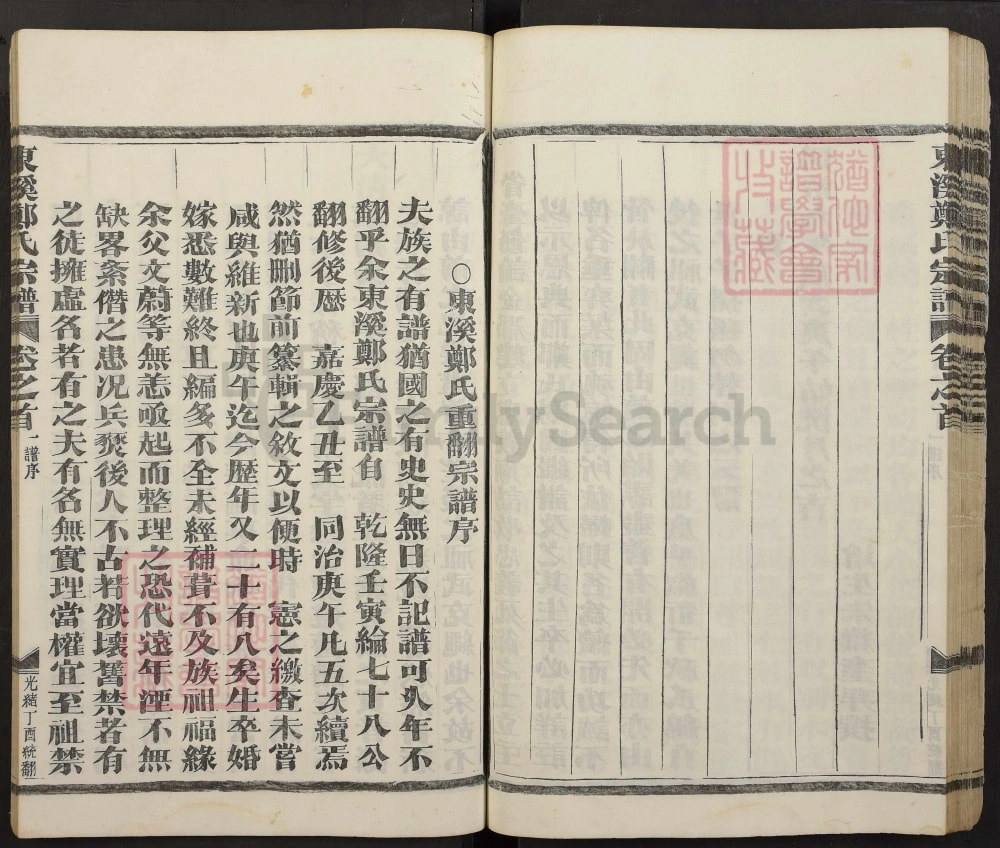 東溪鄭氏宗譜
卷之首
○東溪鄭氏重翻宗譜序
夫族之有譜猶國之有史史無日不記譜可久年不
翻乎余東溪鄭氏宗譜自 乾隆壬寅綸七十八公
翻修後歷 嘉慶乙丑至 同治庚午凡五次續焉
然猶刪節前纂輯之敘文以便時 憲之繳查未嘗
咸與維新也庚午迄今歷年又二十有八矣生卒婚
嫁悉數難終且編多不全未經補葺不及族祖福緣
余父文蔚等無恙亟起而整理之恐代遠年湮不無
缺畧紊僭之患况兵燹後人不古若欲壞舊禁者有
之徒擁虛名者有之夫有名無實理當權宜至祖禁
東溪鄭氏宗譜
卷之首
一 譜序
光緒丁酉統翻
FamilySearch